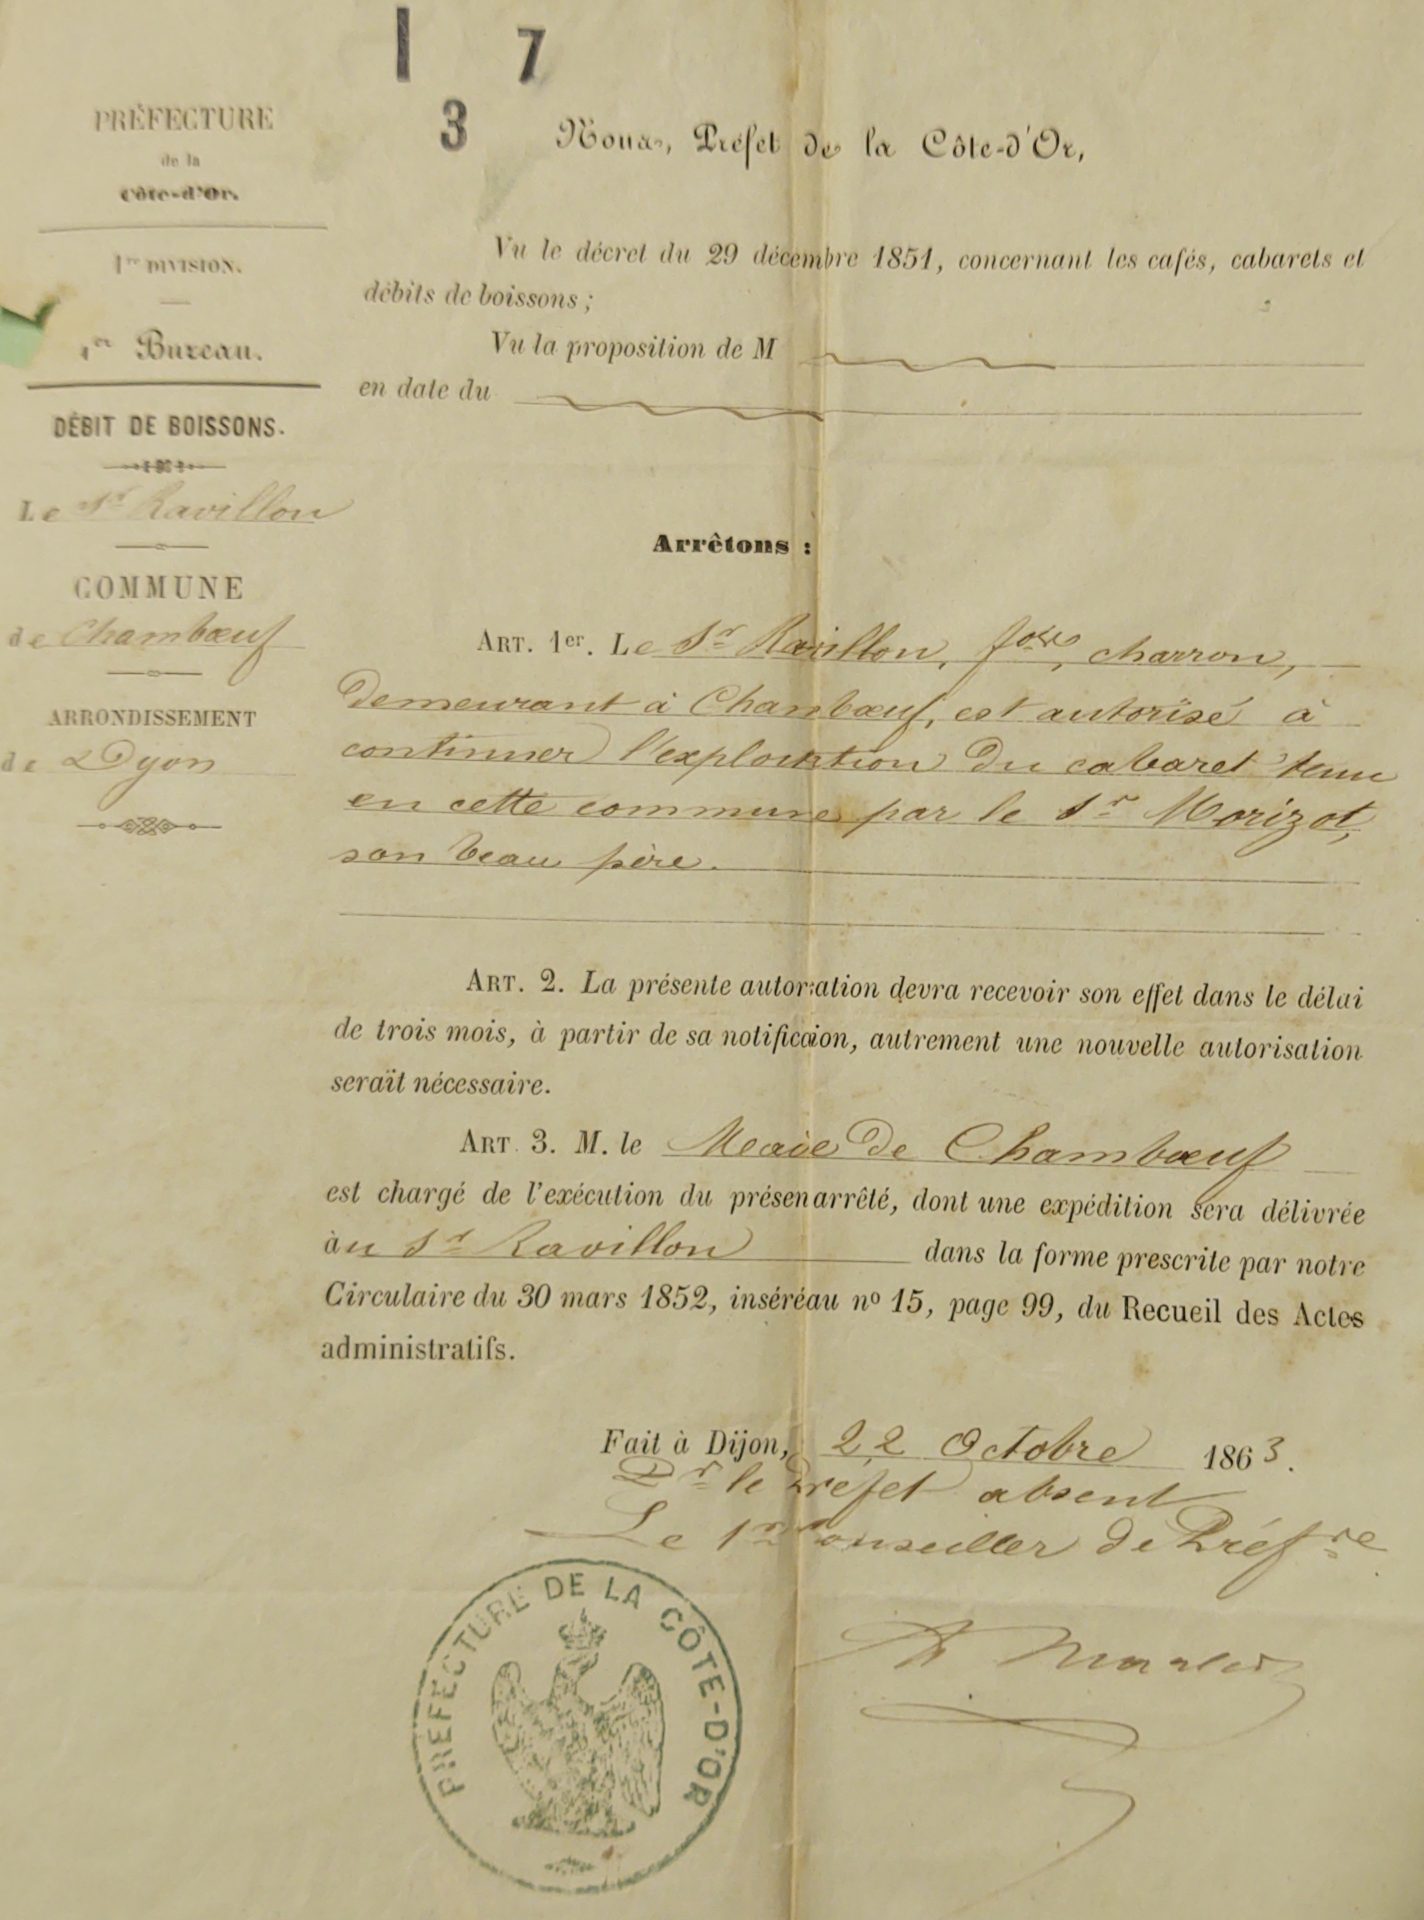 1 7
3
PRÉFECTURE
de la
Côte-d'Or.
1re DIVISION.
1er Bureau.
DÉBIT DE BOISSONS.
Le Sr Ravillon
COMMUNE
de Chambœuf
ARRONDISSEMENT
de Dijon
Nous, Préfet de la Côte-d'Or,
Vu le décret du 29 décembre 1851, concernant les cafés, cabarets et
débits de boissons ;
Vu la proposition de M
en date du
Arrêtons :
ART. 1er. Le Sr Ravillon, charron,
demeurant à Chambœuf, est autorisé à
continuer l'exploitation du cabaret tenu
en cette commune par le Sr Morizot,
son beau père.
ART. 2. La présente autorisation devra recevoir son effet dans le délai
de trois mois, à partir de sa notification, autrement une nouvelle autorisation
serait nécessaire.
ART. 3. M. le Maire de Chambœuf
est chargé de l'exécution du présent arrêté, dont une expédition sera délivrée
au Sr Ravillon dans la forme prescrite par notre
Circulaire du 30 mars 1852, inséré au no 15, page 99, du Recueil des Actes
administratifs.
Fait à Dijon, 22 Octobre 1863.
Pr le Préfet absent
Le 1er Conseiller de Préfre
PRÉFECTURE DE LA CÔTE-D'OR